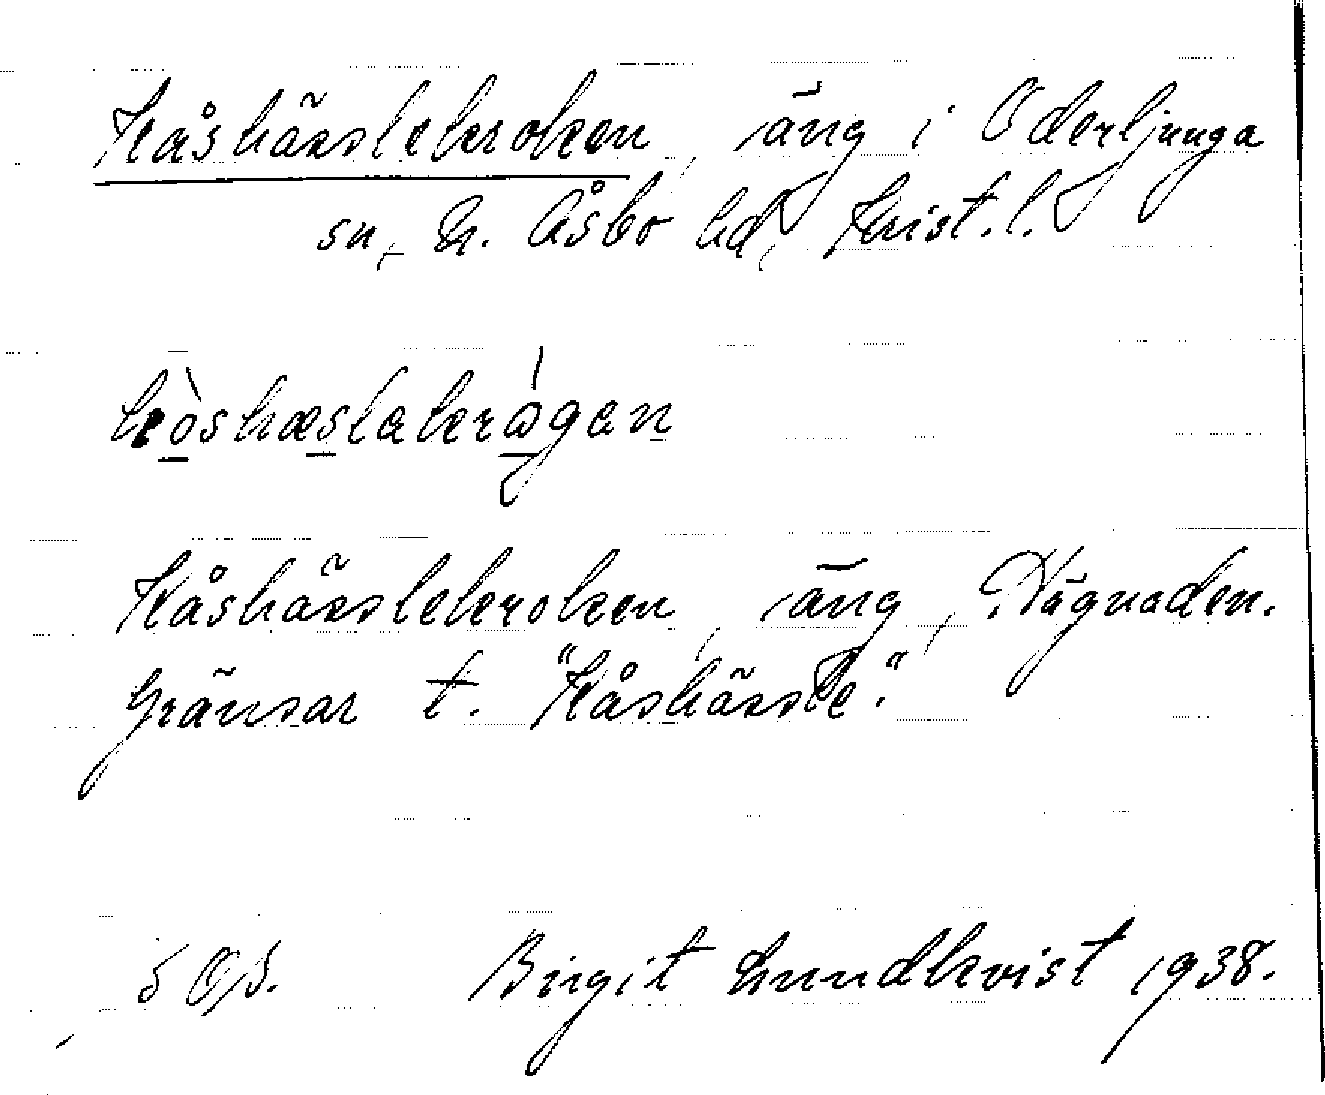 Kåshässlekroken, äng i Oderljunga
sn, N. Åsbo hd, Krist. l.
kòshæslakrågan
Kåshässlekroken, äng, Vägnaden.
Gränsar t. "Kåshässle".
SOS. Birgit Lundkvist 1938.